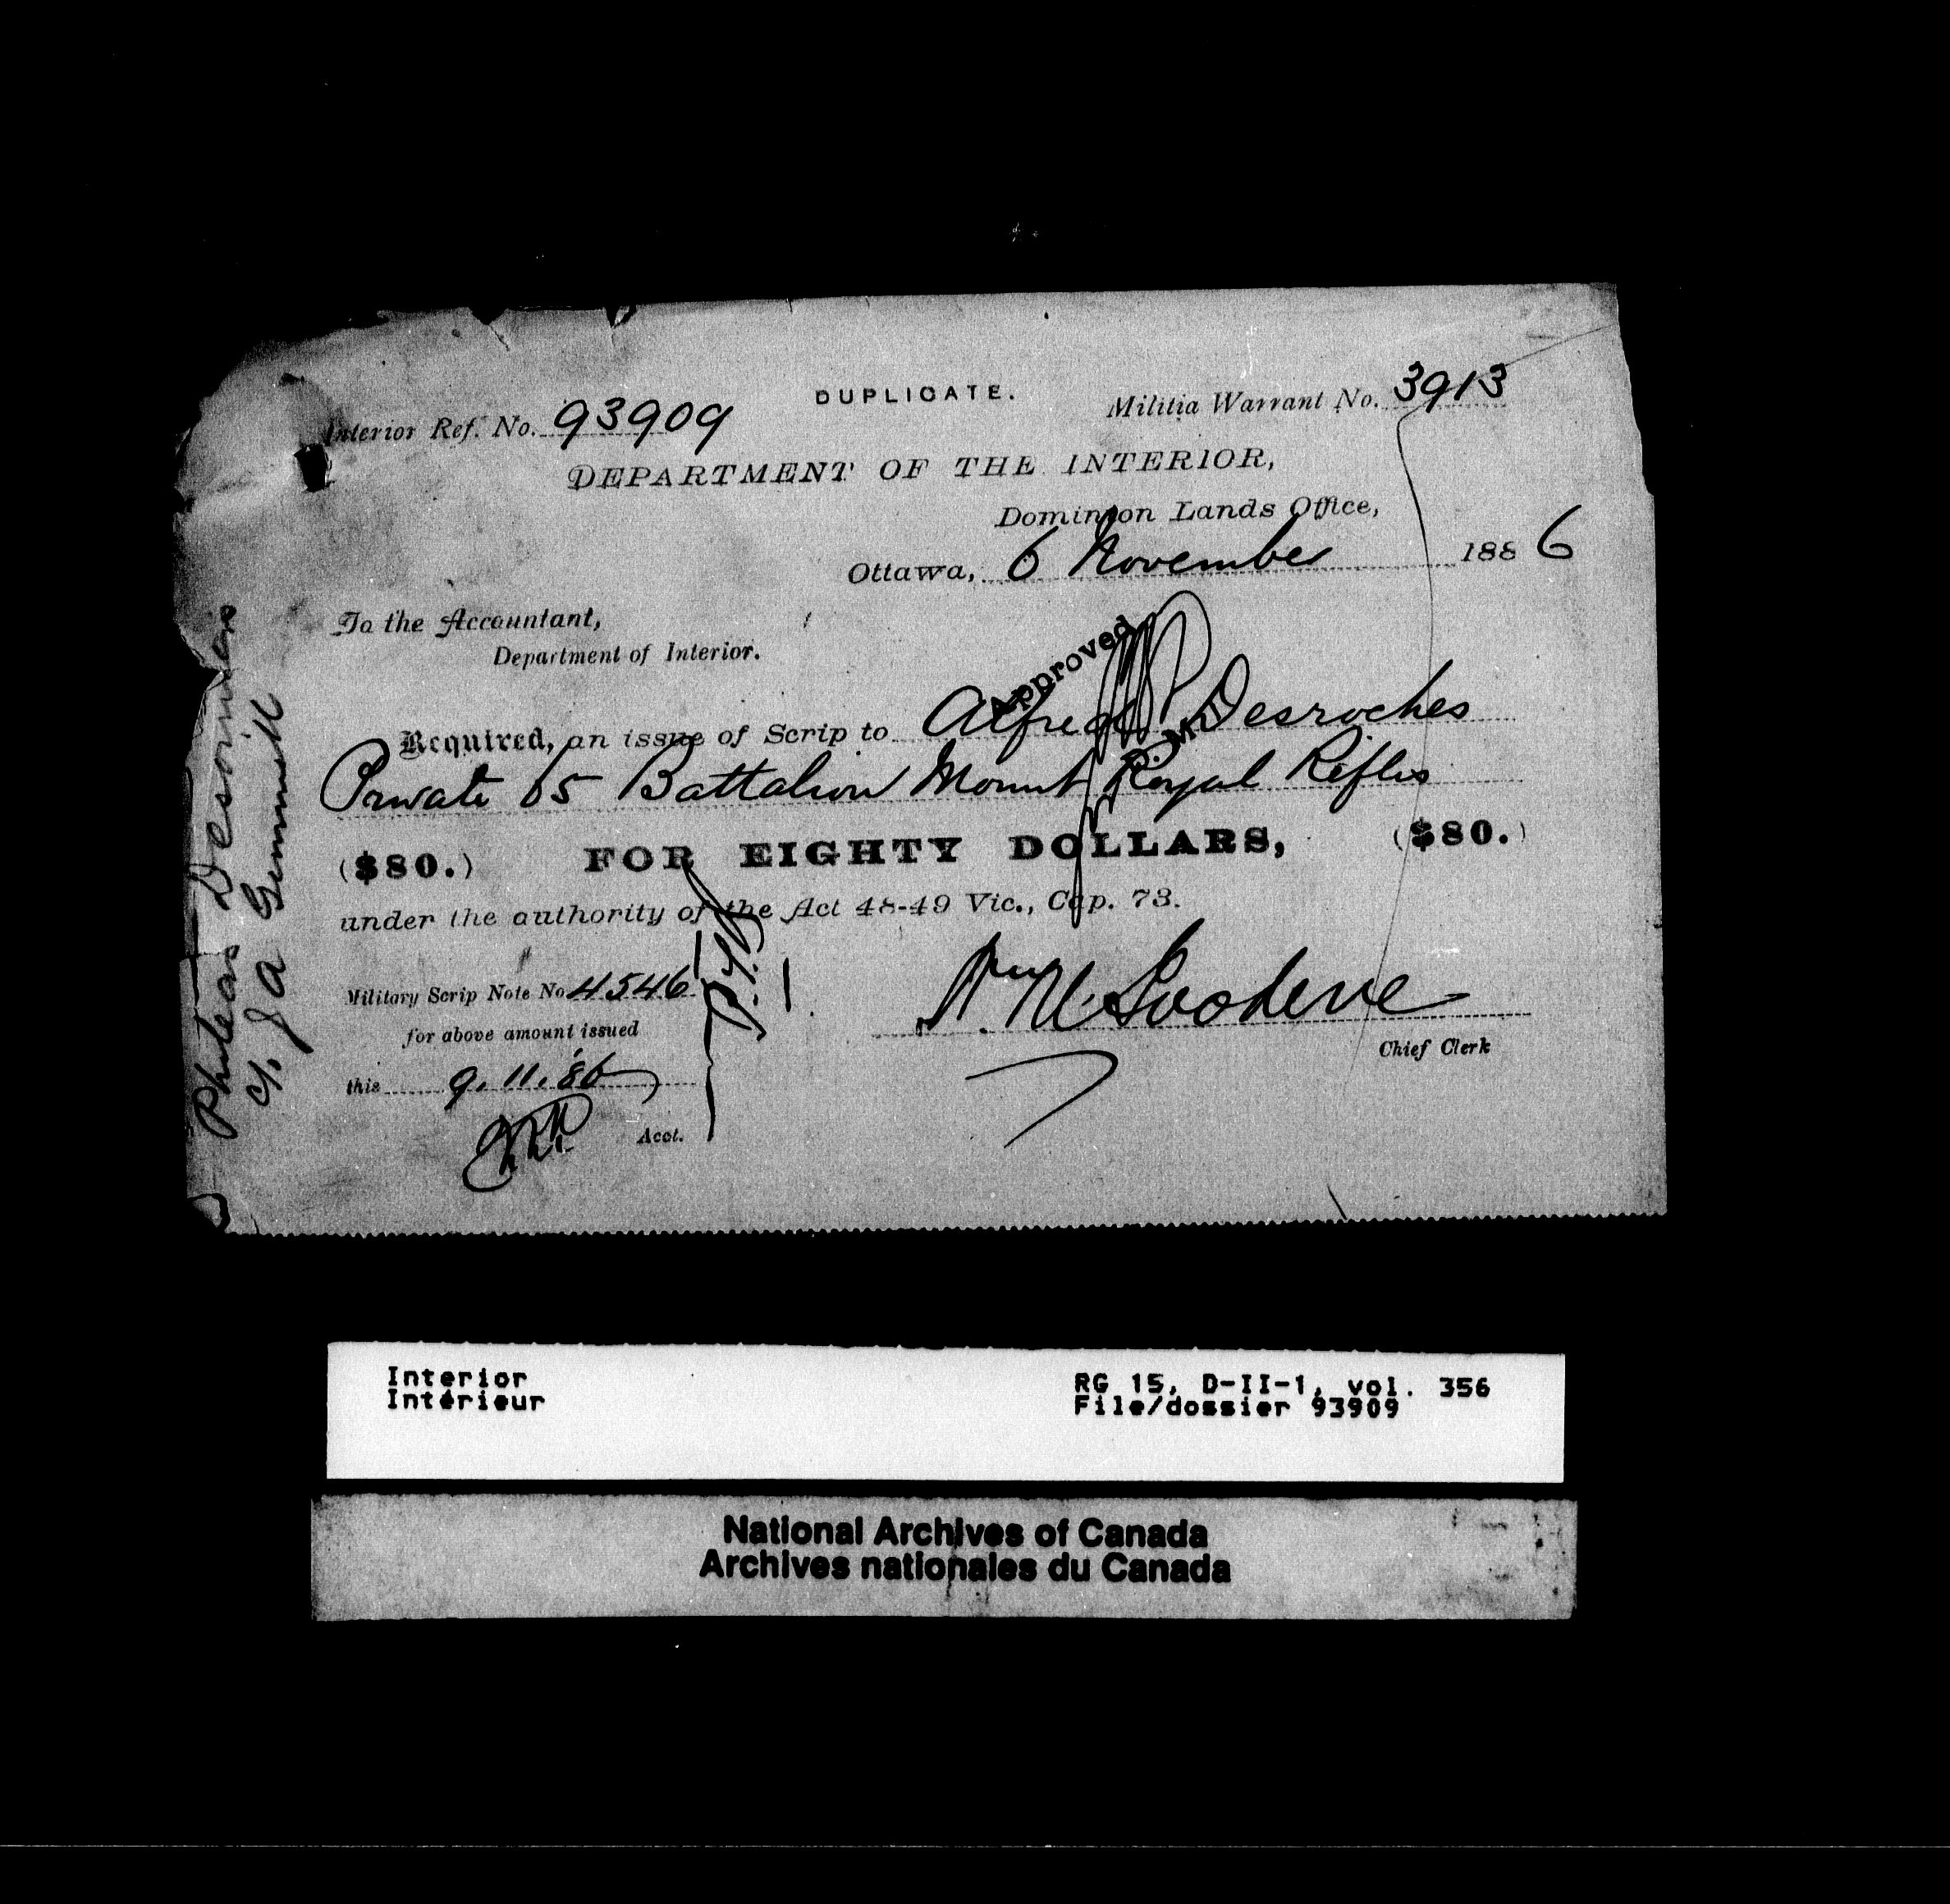 DUPLICATE.
Interior Ref. No. 93909
Militia Warrant No. 3913
DEPARTMENT OF THE INTERIOR,
Dominion Lands Office,
Ottawa, 6 November 1886
To the Accountant,
Department of Interior.
Approved
Required, an issue of Scrip to Alfred Desroches
Private 65 Battalion Mount Royal Rifles
($80.) FOR EIGHTY DOLLARS, ($80.)
under the authority of the Act 48-49 Vic., Cap. 73.
Military Scrip Note No 4546
for above amount issued
this 9.11.86
Acct.
Wm M. Goodeve
Chief Clerk
Phileas
c/. J A Gemmill
Interior
Intérieur
RG 15, D-II-1, vol. 356
File/dossier 93909
National Archives of Canada
Archives nationales du Canada